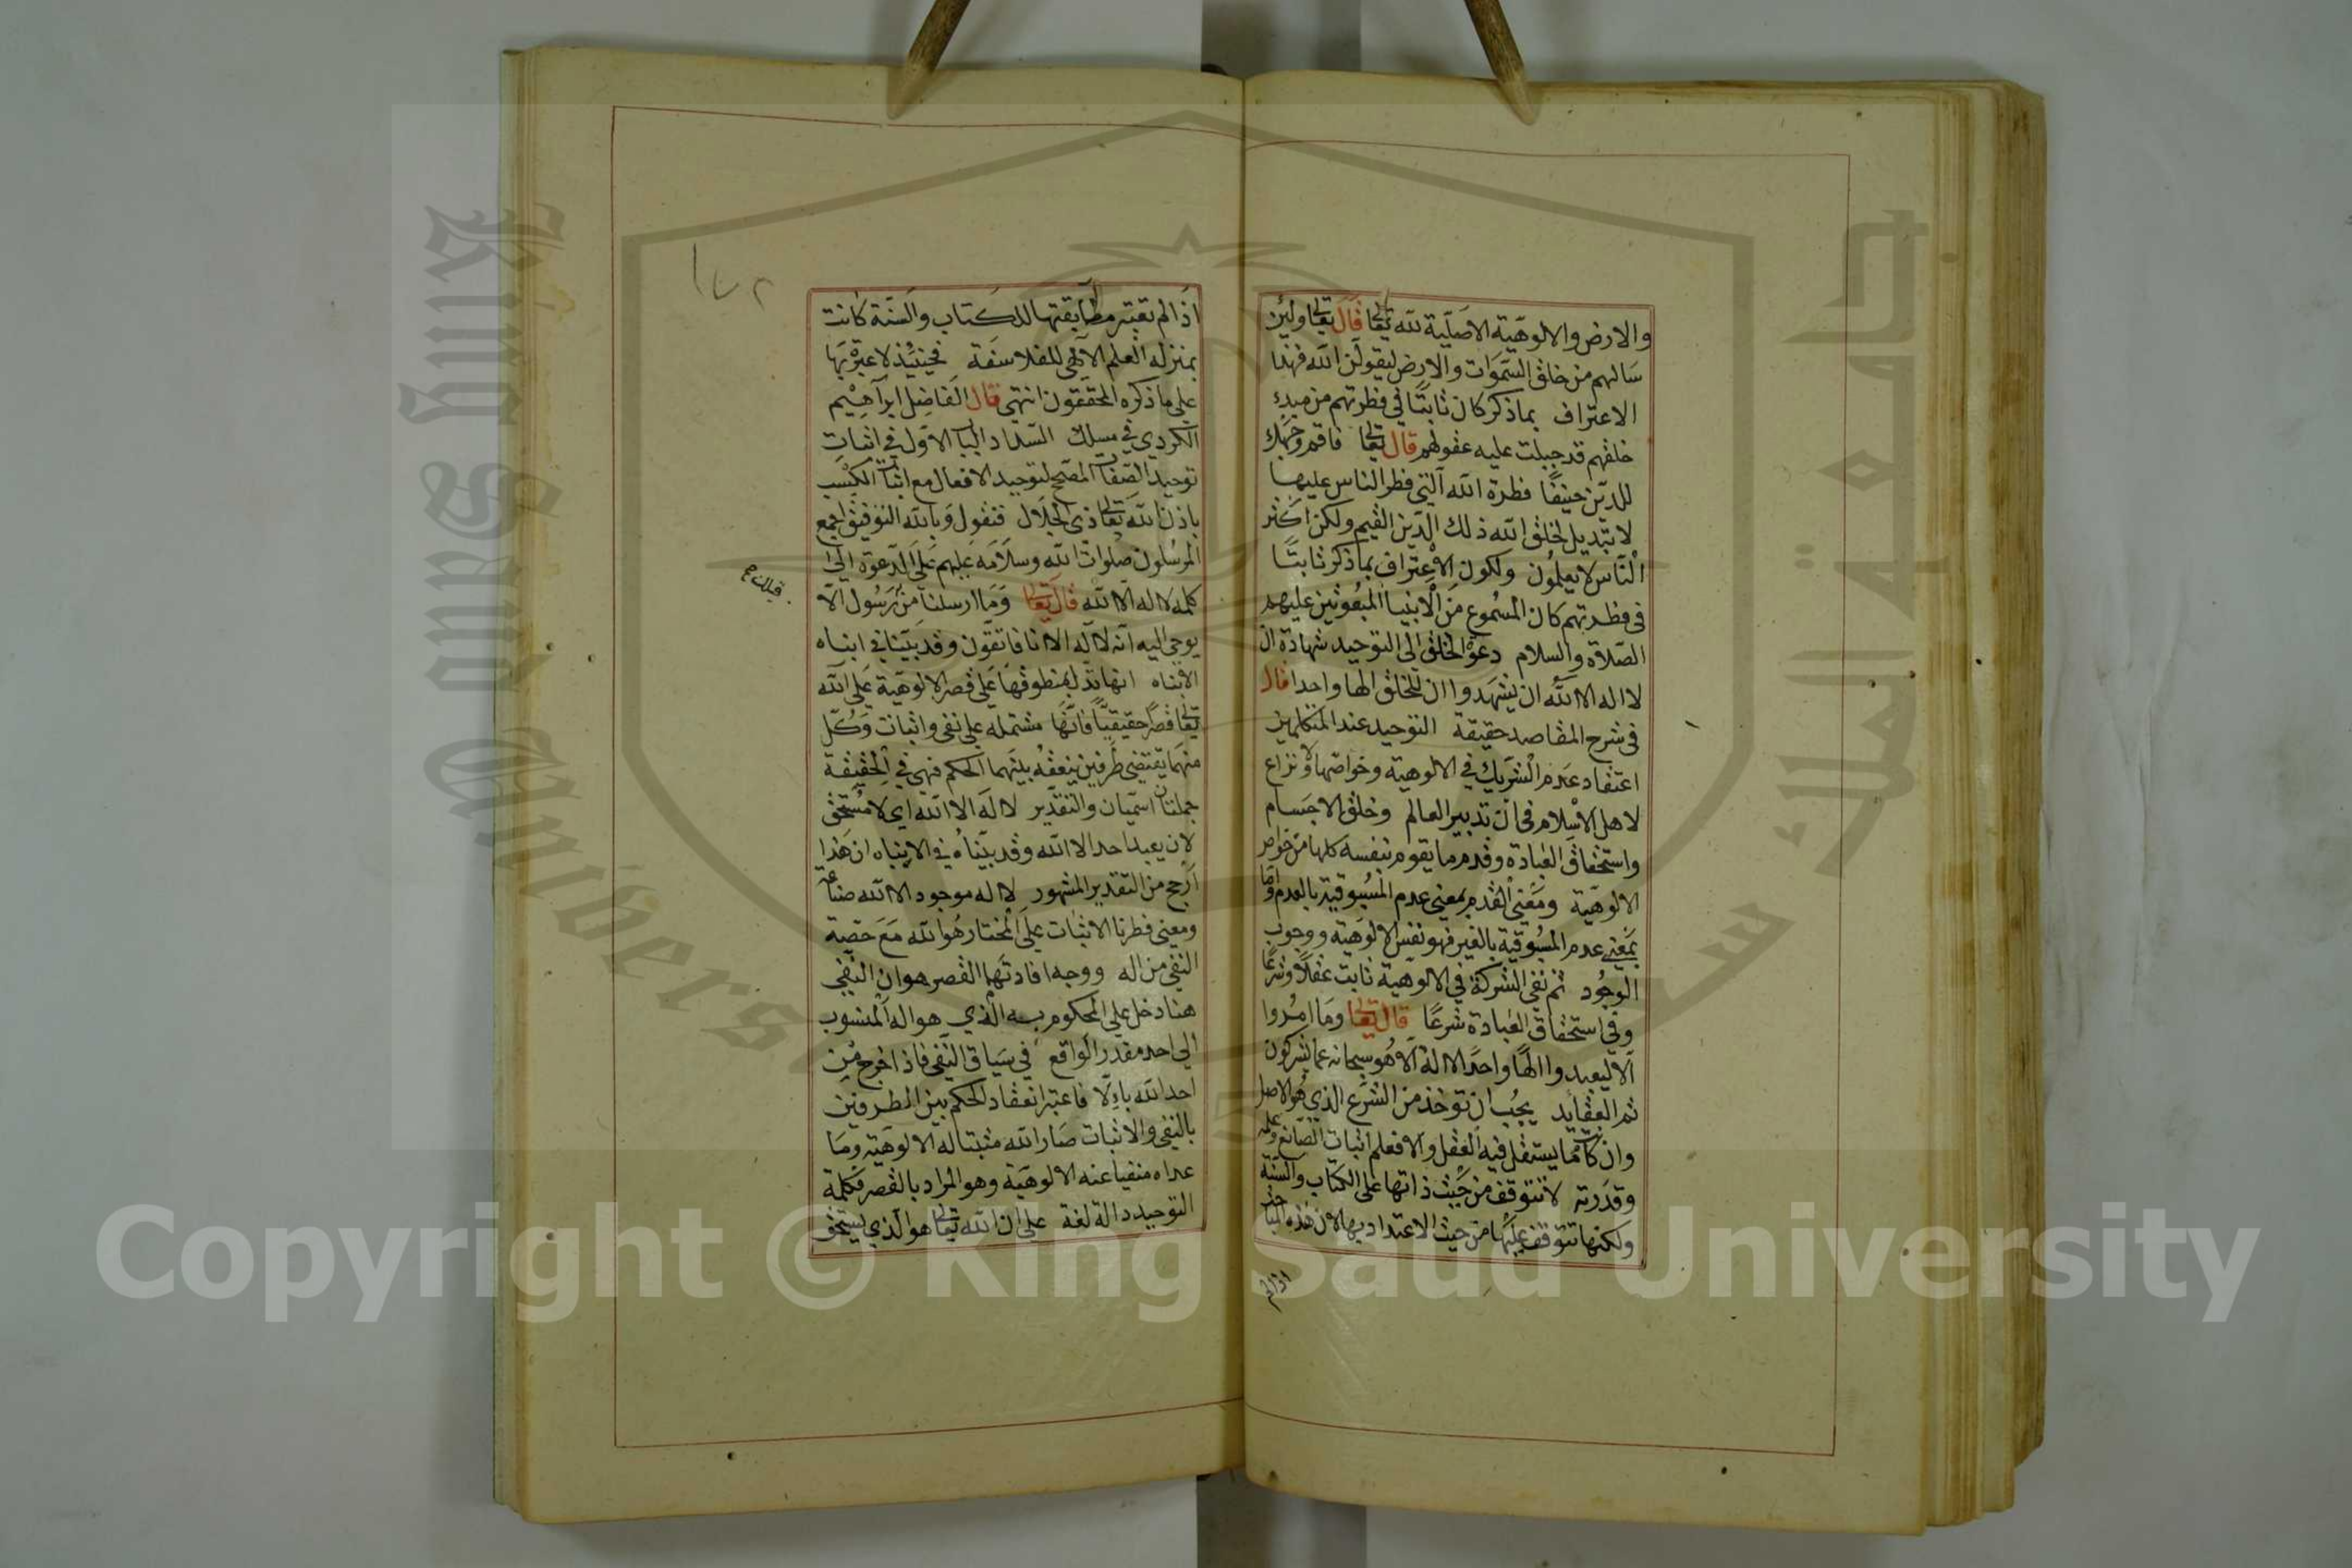 والارض والالوهية الاصلية لله تعالى قال تعالى ولئن
سالهم من خلق السموات والارض ليقولن الله فهذا
الاعتراف بما ذكر كان ثابتا في فطرتهم من مبدء
خلقهم قد جبلت عليه عقولهم قال تعالى فاقم وجهك
للدين حنيفا فطرة الله التي فطر الناس عليها
لا تبديل لخلق الله ذلك الدين القيم ولكن اكثر
الناس لا يعلمون ولكون الاعتراف بما ذكر ثابتا
في فطرتهم كان المسموع من الانبيا المبعوثين عليهم
الصلاة والسلام دعوة الخلق الى التوحيد شهادة ان
لا اله الا الله ان يشهدوا ان للخلق الها واحدا قال
في شرح المقاصد حقيقة التوحيد عند المتكلمين
اعتقاد عدم الشريك في الالوهية وخواصها ولا نزاع
لاهل الاسلام في ان تدبير العالم وخلق الاجسام
واستحقاق العبادة وقدم ما يقوم بنفسه كلها من خواص
الالوهية ومعنى القدم بمعنى عدم المسبوقية بالعدم واما
بمعنى عدم المسبوقية بالغير فهو نفس الالوهية ووجوب
الوجود ثم نفي الشركة في الالوهية ثابت عقلا وشرعا
وفي استحقاق العبادة شرعا قال تعالى وما امروا
الا ليعبدوا الها واحدا لا اله الا هو سبحانه عما يشركون
ثم العقائد يجب ان توخذ من الشرع الذي هو الاصل
وان كانت مما يستقل فيه العقل والا فعلم اثبات الصانع وعلمه
وقدرته لا تتوقف من حيث ذاتها على الكتاب والسنة
ولكنها تتوقف عليها من حيث الاعتداد بها لان هذه المباحث
اذا لم
١٧٢
اذا لم تعتبر مطابقتها للكتاب والسنة كانت
بمنزلة العلم الالهي للفلاسفة فحينئذ لا عبرة بها
على ما ذكره المحققون انتهى قال الفاضل ابراهيم
الكردي في مسلك السداد الباب الاول في اثبات
توحيد الصفات المصحح لتوحيد الافعال مع اثبات الكسب
باذن الله تعالى ذي الجلال فنقول وبالله التوفيق اجمع
المرسلون صلوات الله وسلامه عليهم على الدعوة الى
كلمة لا اله الا الله قال تعالى وما ارسلنا من رسول الا
يوحى اليه انه لا اله الا انا فاتقون وقد بينا في انباه
الانباه انها تدل بمنطوقها على قصر الالوهية على الله
تعالى قصرا حقيقيا فانها مشتملة على نفي واثبات وكل
منهما يقتضي طرفين ينعقد بينهما الحكم فهي في الحقيقة
جملتان اسميان والتقدير لا اله الا الله اي لا مستحق
لان يعبد احد الا الله وقد بيناه في الانباه ان هذا
ارجح من التقدير المشهور لا اله موجود الا الله صناعة
ومعنى فطرنا الاثبات على المختار هو الله مع حصة
النفي من اله ووجه افادتها القصر هو ان النفي
هنا دخل على المحكوم به الذي هو اله المنسوب
الى احد مقدر الواقع في سياق النفي فاذا اخرج من
احد الله بالا فاعتبر انعقاد الحكم بين الطرفين
بالنفي والاثبات صار الله مثبتا له الالوهية وما
عداه منفيا عنه الالوهية وهو المراد بالقصر فكلمة
التوحيد دالة لغة على ان الله تعالى هو الذي يستحق
King Saud University
جامعة الملك سعود
Copyright © King Saud University